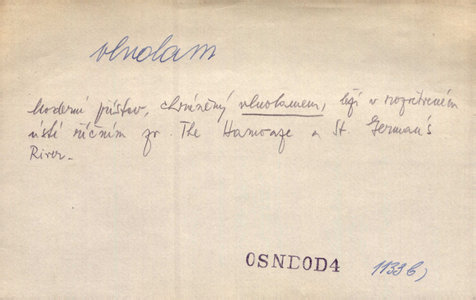 vlnolam
Moderní přístav, chráněný vlnolamem, leží v rozevřeném
ústí říčním zv. The Hamoaze a St German's
River.
OSNDOD4 1139b)